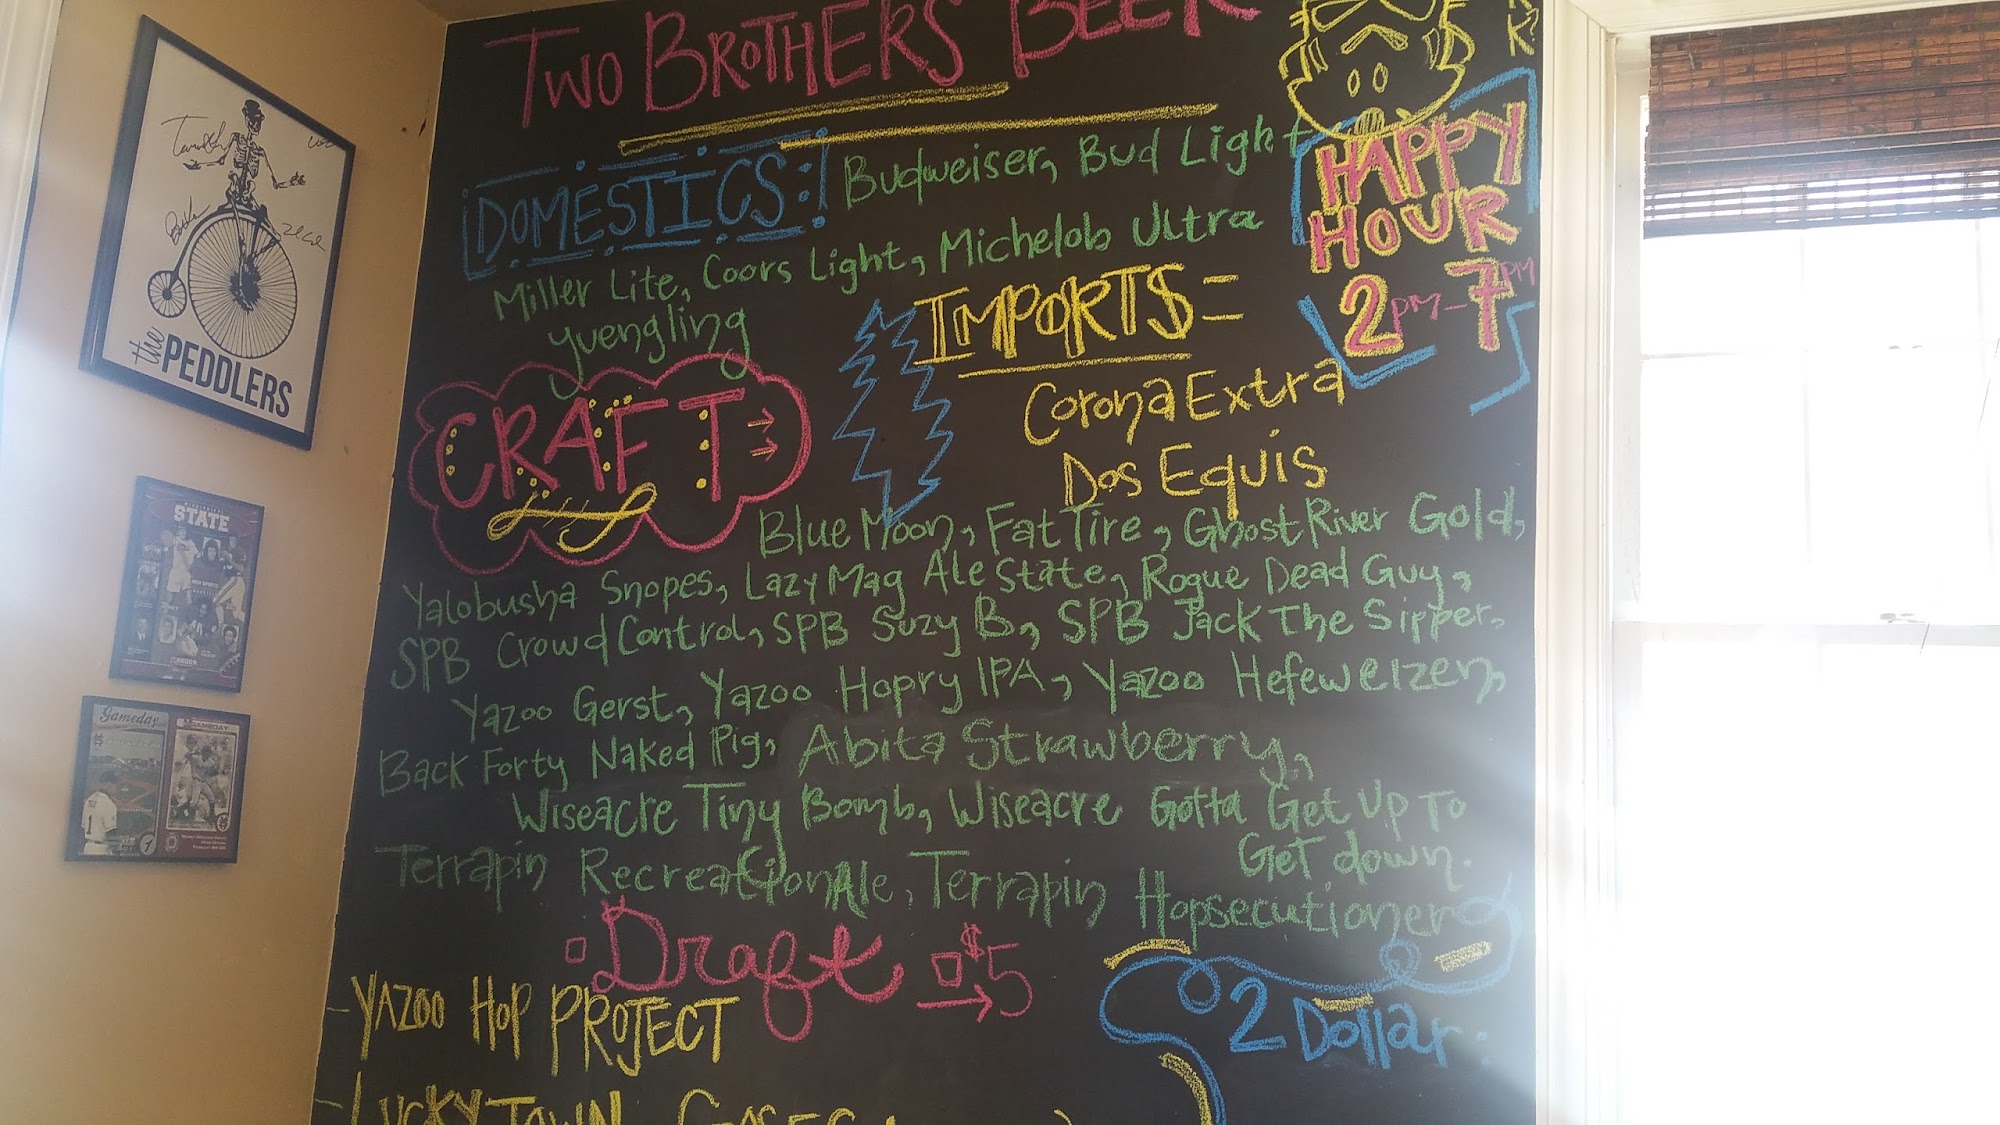 TWO BROTHERS BEER
DOMESTICS: Budweiser, Bud Light
Miller Lite, Coors Light, Michelob Ultra
Yuengling
HAPPY
HOUR
2PM-7PM
IMPORTS=
Corona Extra
Dos Equis
CRAFT
Blue Moon, Fat Tire, Ghost River Gold,
Yalobusha Snopes, Lazy Mag Ale State, Rogue Dead Guy,
SPB Crowd Control, SPB Suzy B, SPB Jack The Sipper,
Yazoo Gerst, Yazoo Hopry IPA, Yazoo Hefeweizen,
Back Forty Naked Pig, Abita Strawberry,
Wiseacre Tiny Bomb, Wiseacre Gotta Get Up To
Get down.
Terrapin Recreation Ale, Terrapin Hopsecutioner
Draft $5
-YAZOO HOP PROJECT
-LUCKYTOWN
2 Dollar
the
PEDDLERS
STATE
Gameday
GAMEDAY